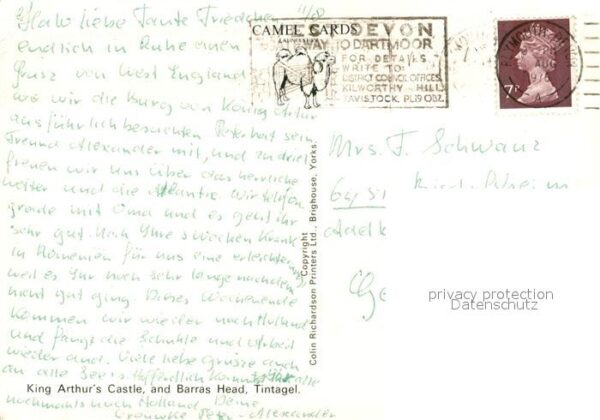 Hallo liebe Tante Friedchen 11/8
endlich in Ruhe einen
Gruss von West England
wo wir die Burg von König Artur
ausführlich besuchten. Peter hat sein
Freund Alexander mit, und zu dritt
freuen wir uns über das herrliche
wetter und die Atlantic. Wir telefon.
grade mit Oma und es geht ihr
sehr gut. Nach Ihre 3 wochen Krank
in Rumenien für uns eine erleichterung
weil es Ihr noch sehr lange nachdem
nicht gut ging. Dieses Wochenende
kommen wir wieder nach Holland
und fängt die Schuhle und Arbeit
wieder and. Viele liebe grüsse auch
an alle Hoffentlich kommt Ihr alle
nochmahls nach Holland Deine
Peter - Alexander
King Arthur's Castle, and Barras Head, Tintagel.
Copyright
Colin Richardson Printers Ltd., Brighouse, Yorks.
CAMEL CARDS
DEVON
WAY TO DARTMOOR
FOR DETAILS
WRITE TO:
DISTRICT COUNCIL OFFICES
KILWORTHY HILL
TAVISTOCK. PL19 0BZ.
7P
Mrs. F. Schwanz
privacy protection
Datenschutz